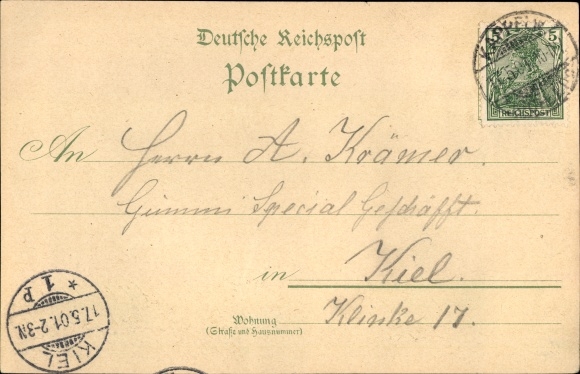 Deutsche Reichspost
Postkarte
5 5
REICHSPOST
KAPPELN
An Herrn A. Krämer.
Gummi Special Geschäfft.
in Kiel.
Wohnung
(Straße und Hausnummer)
Klinke 17.
KIEL
17.5.01. 2-3N.
* 1 P